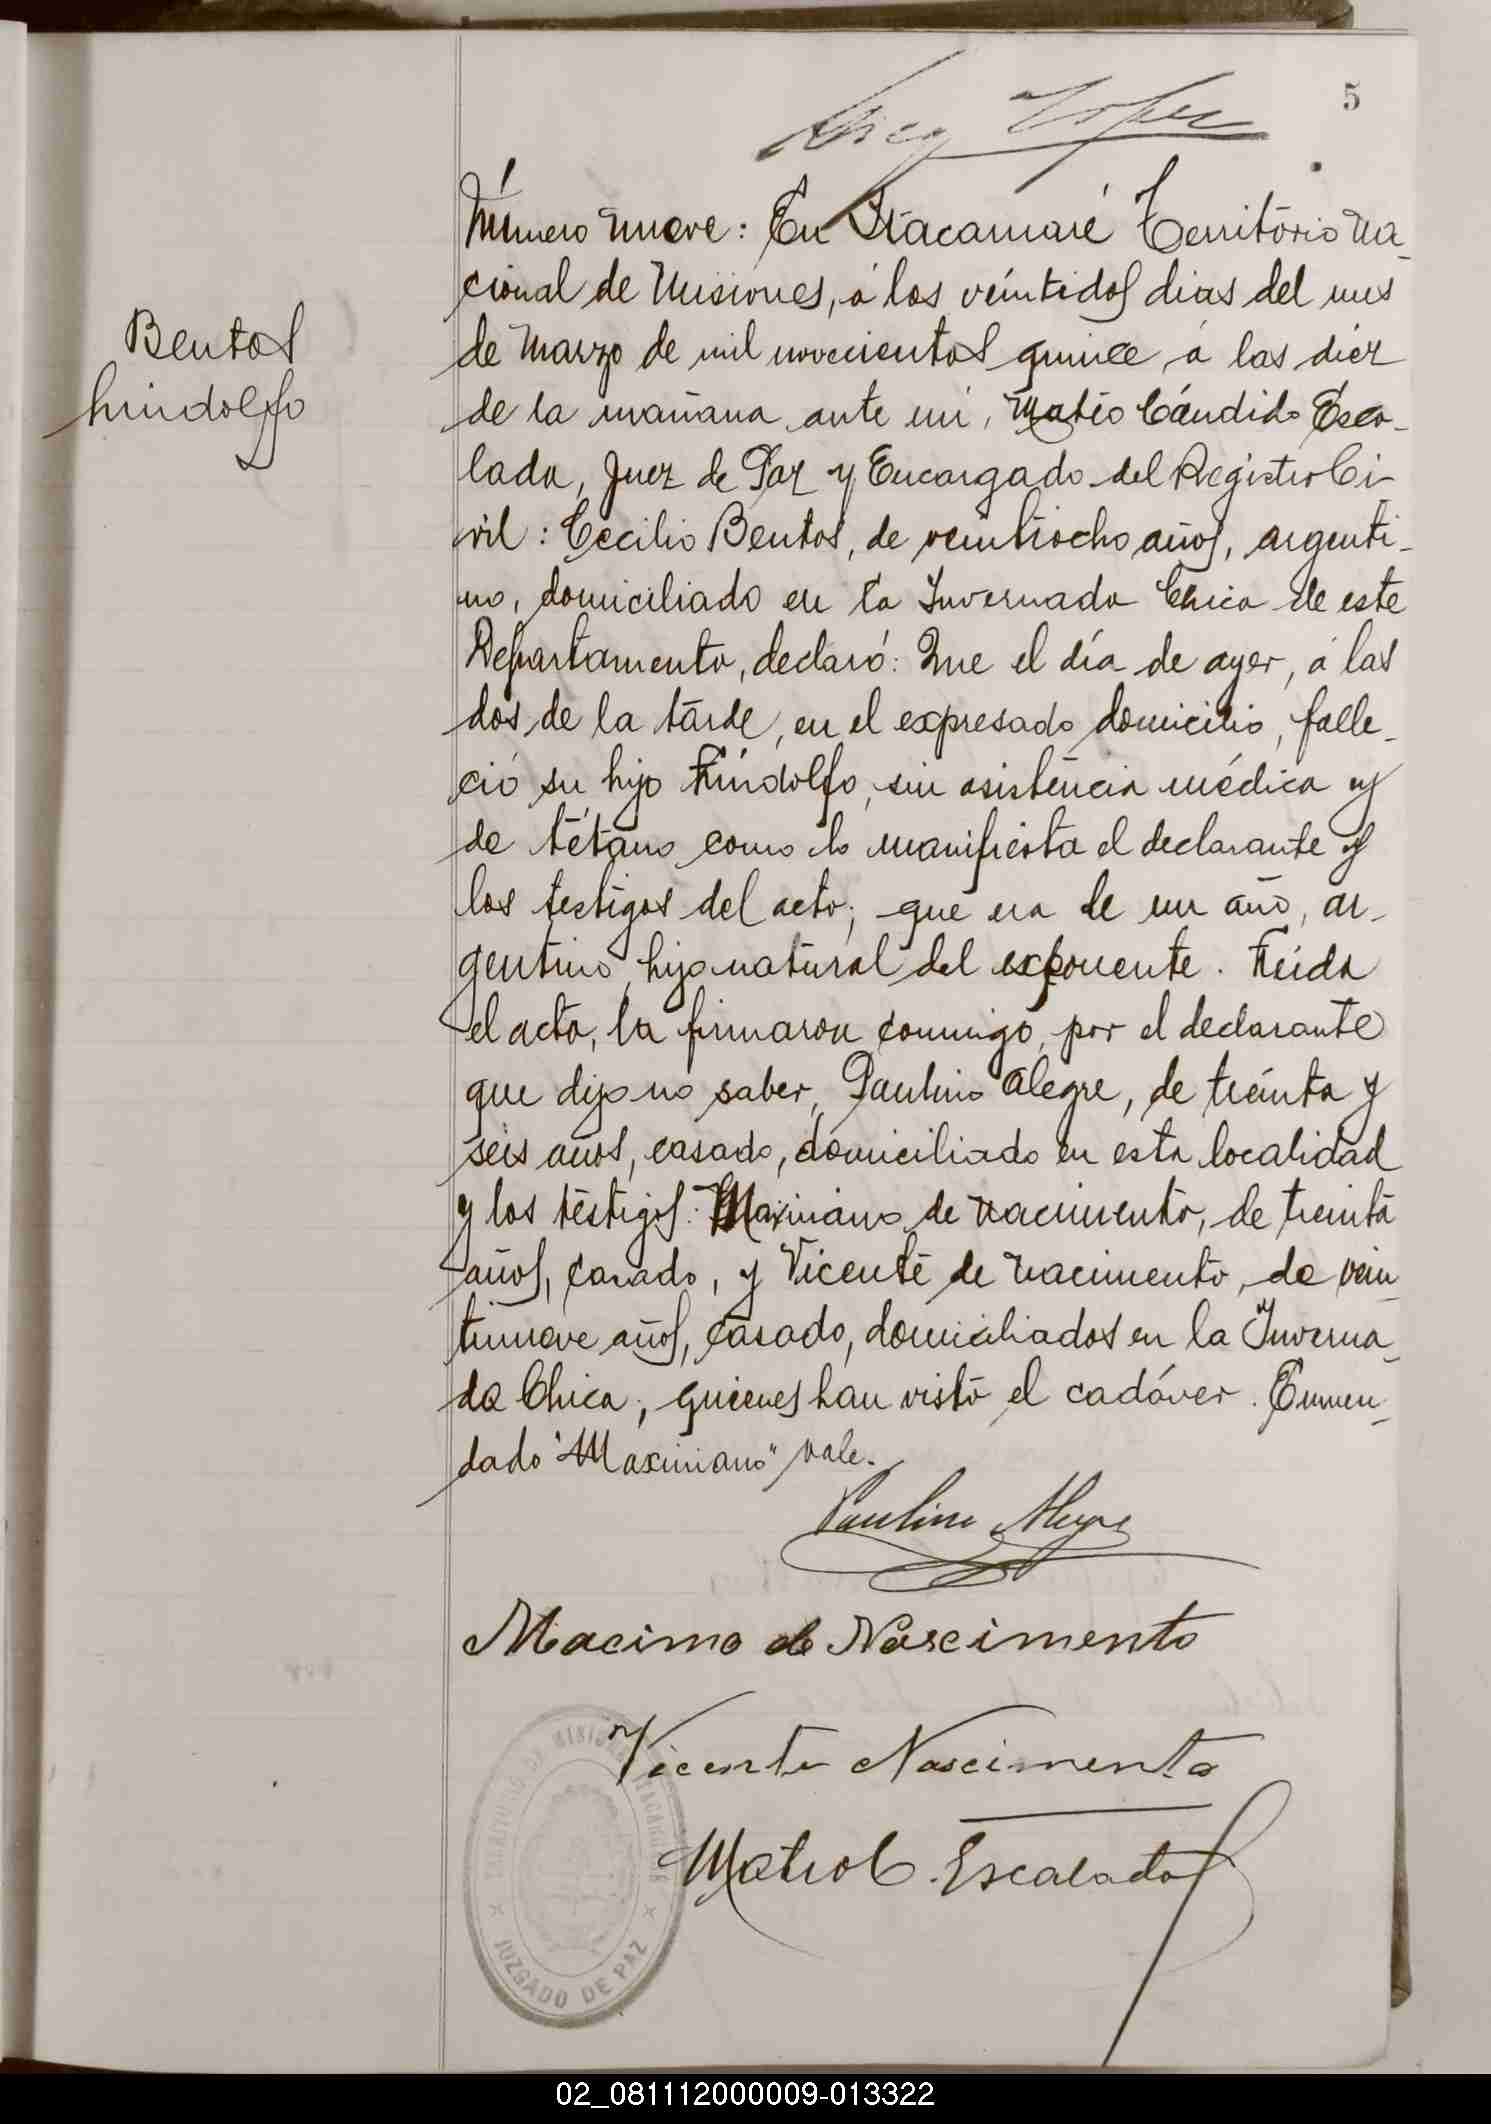 5
Número nueve: En Itacaruaré Territorio Na_
cional de Misiones, á los veintidos dias del mes
de Marzo de mil novecientos quince á las diéz
de la mañana ante mí, Matéo Cándido Esca_
lada, Juez de Paz y Encargado del Registro Ci_
vil: Cecilio Bentos, de veintiocho años, argenti_
no, domiciliado en la Invernada Chica de este
Departamento, declaró: Que el día de ayer, á las
dos de la tarde, en el expresado domicilio, falle_
ció su hijo Lindolfo, sin asistencia médica y
de tétano como lo manifiesta el declarante y
los testigos del acto; que era de un año, ar_
gentino, hijo natural del exponente. Leida
el acta, la firmaron conmigo, por el declarante
que dijo no saber, Paulino Alegre, de treinta y
seis años, casado, domiciliado en esta localidad
y los testigos: Maximiano de Nacimento, de treinta
años, casado, y Vicente de Nacimento, de vein_
tinueve años, casado, domiciliados en la Inverna_
da Chica, quienes han visto el cadáver. Enmen_
dado "Maximiano" vale.
Bentos
Lindolfo
Paulino Alegre
Macimo de Nascimento
Vicente Nascimento
Mateo C. Escalada
TERRITORIO DE MISIONES
JUZGADO DE PAZ
02_081112000009-013322